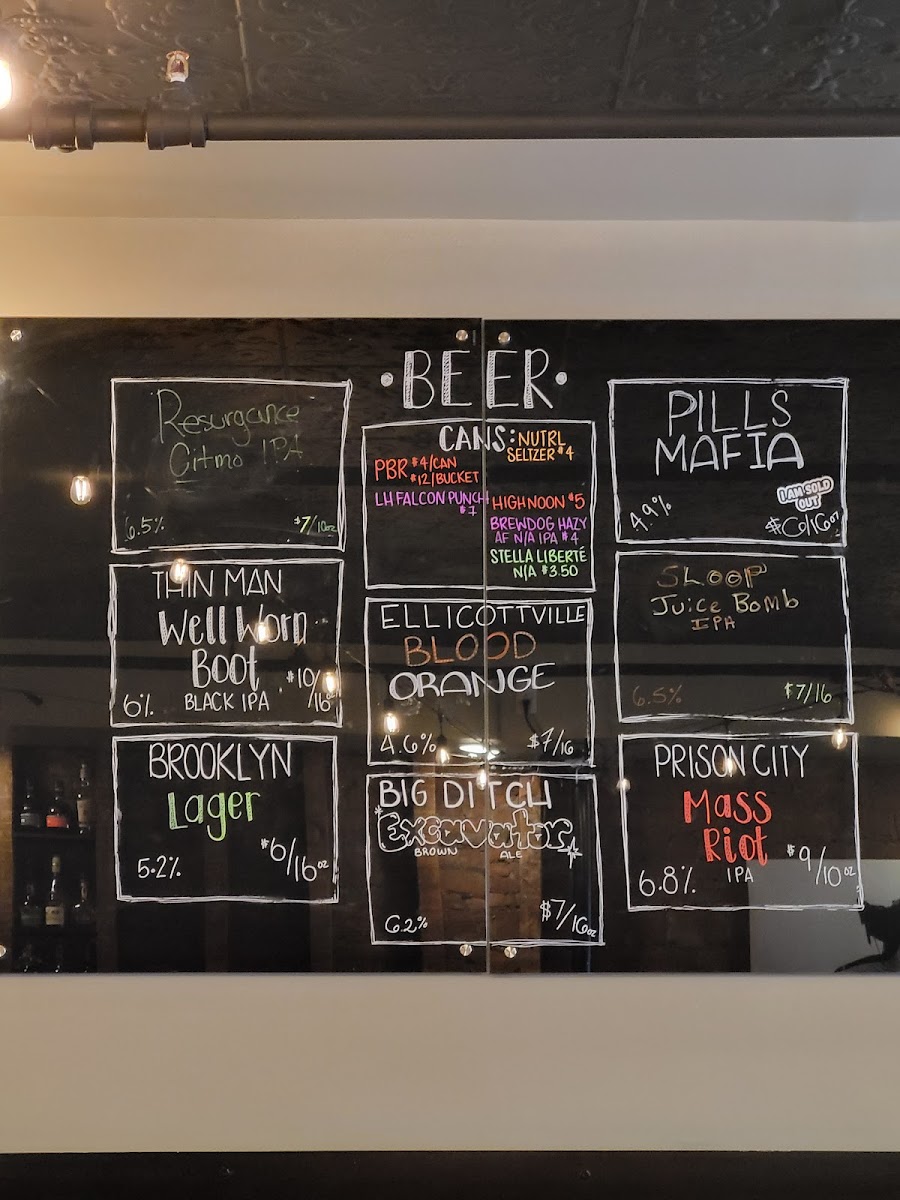 ·BEER·
Resurgance
Citmo IPA
6.5% $7/10oz
THIN MAN
Well Worn
Boot
6% BLACK IPA $10/16oz
BROOKLYN
Lager
5.2% $6/16oz
CANS: NUTRL
SELTZER $4
PBR $4/CAN
$12/BUCKET
LH FALCON PUNCH
$7
HIGH NOON $5
BREWDOG HAZY
AF N/A IPA $4
STELLA LIBERTÉ
N/A $3.50
ELLICOTTVILLE
BLOOD
ORANGE
4.6% $7/16
BIG DITCH
Excavator
BROWN ALE
6.2% $7/16oz
PILLS
MAFIA
4.9% I AM SOLD
OUT
$6/16oz
SLOOP
Juice Bomb
IPA
6.5% $7/16
PRISON CITY
Mass
Riot
6.8% IPA $9/10oz